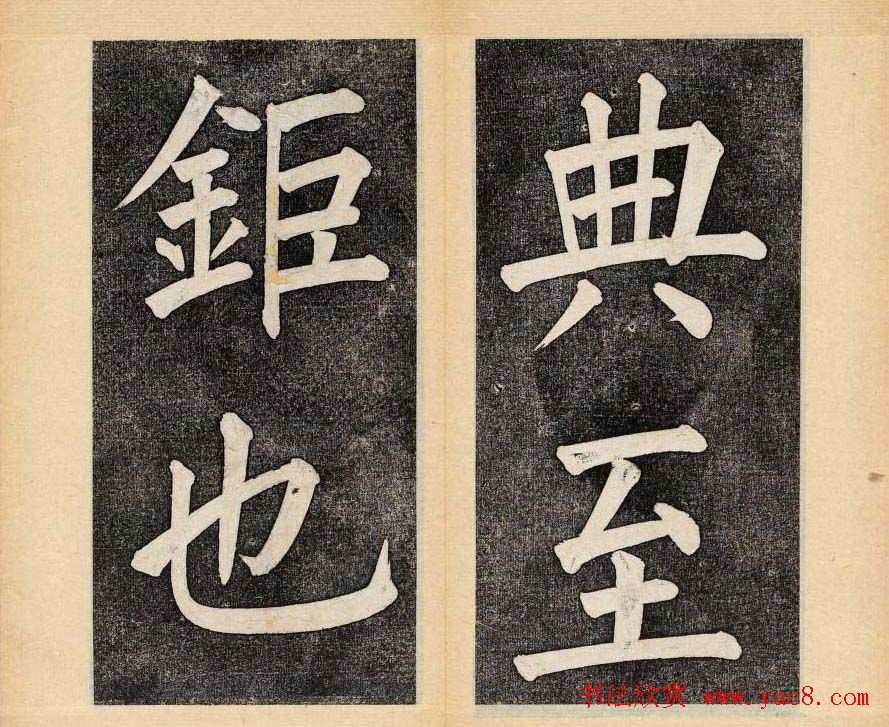 典至
鉅也
书法欣赏 www.yac8.com